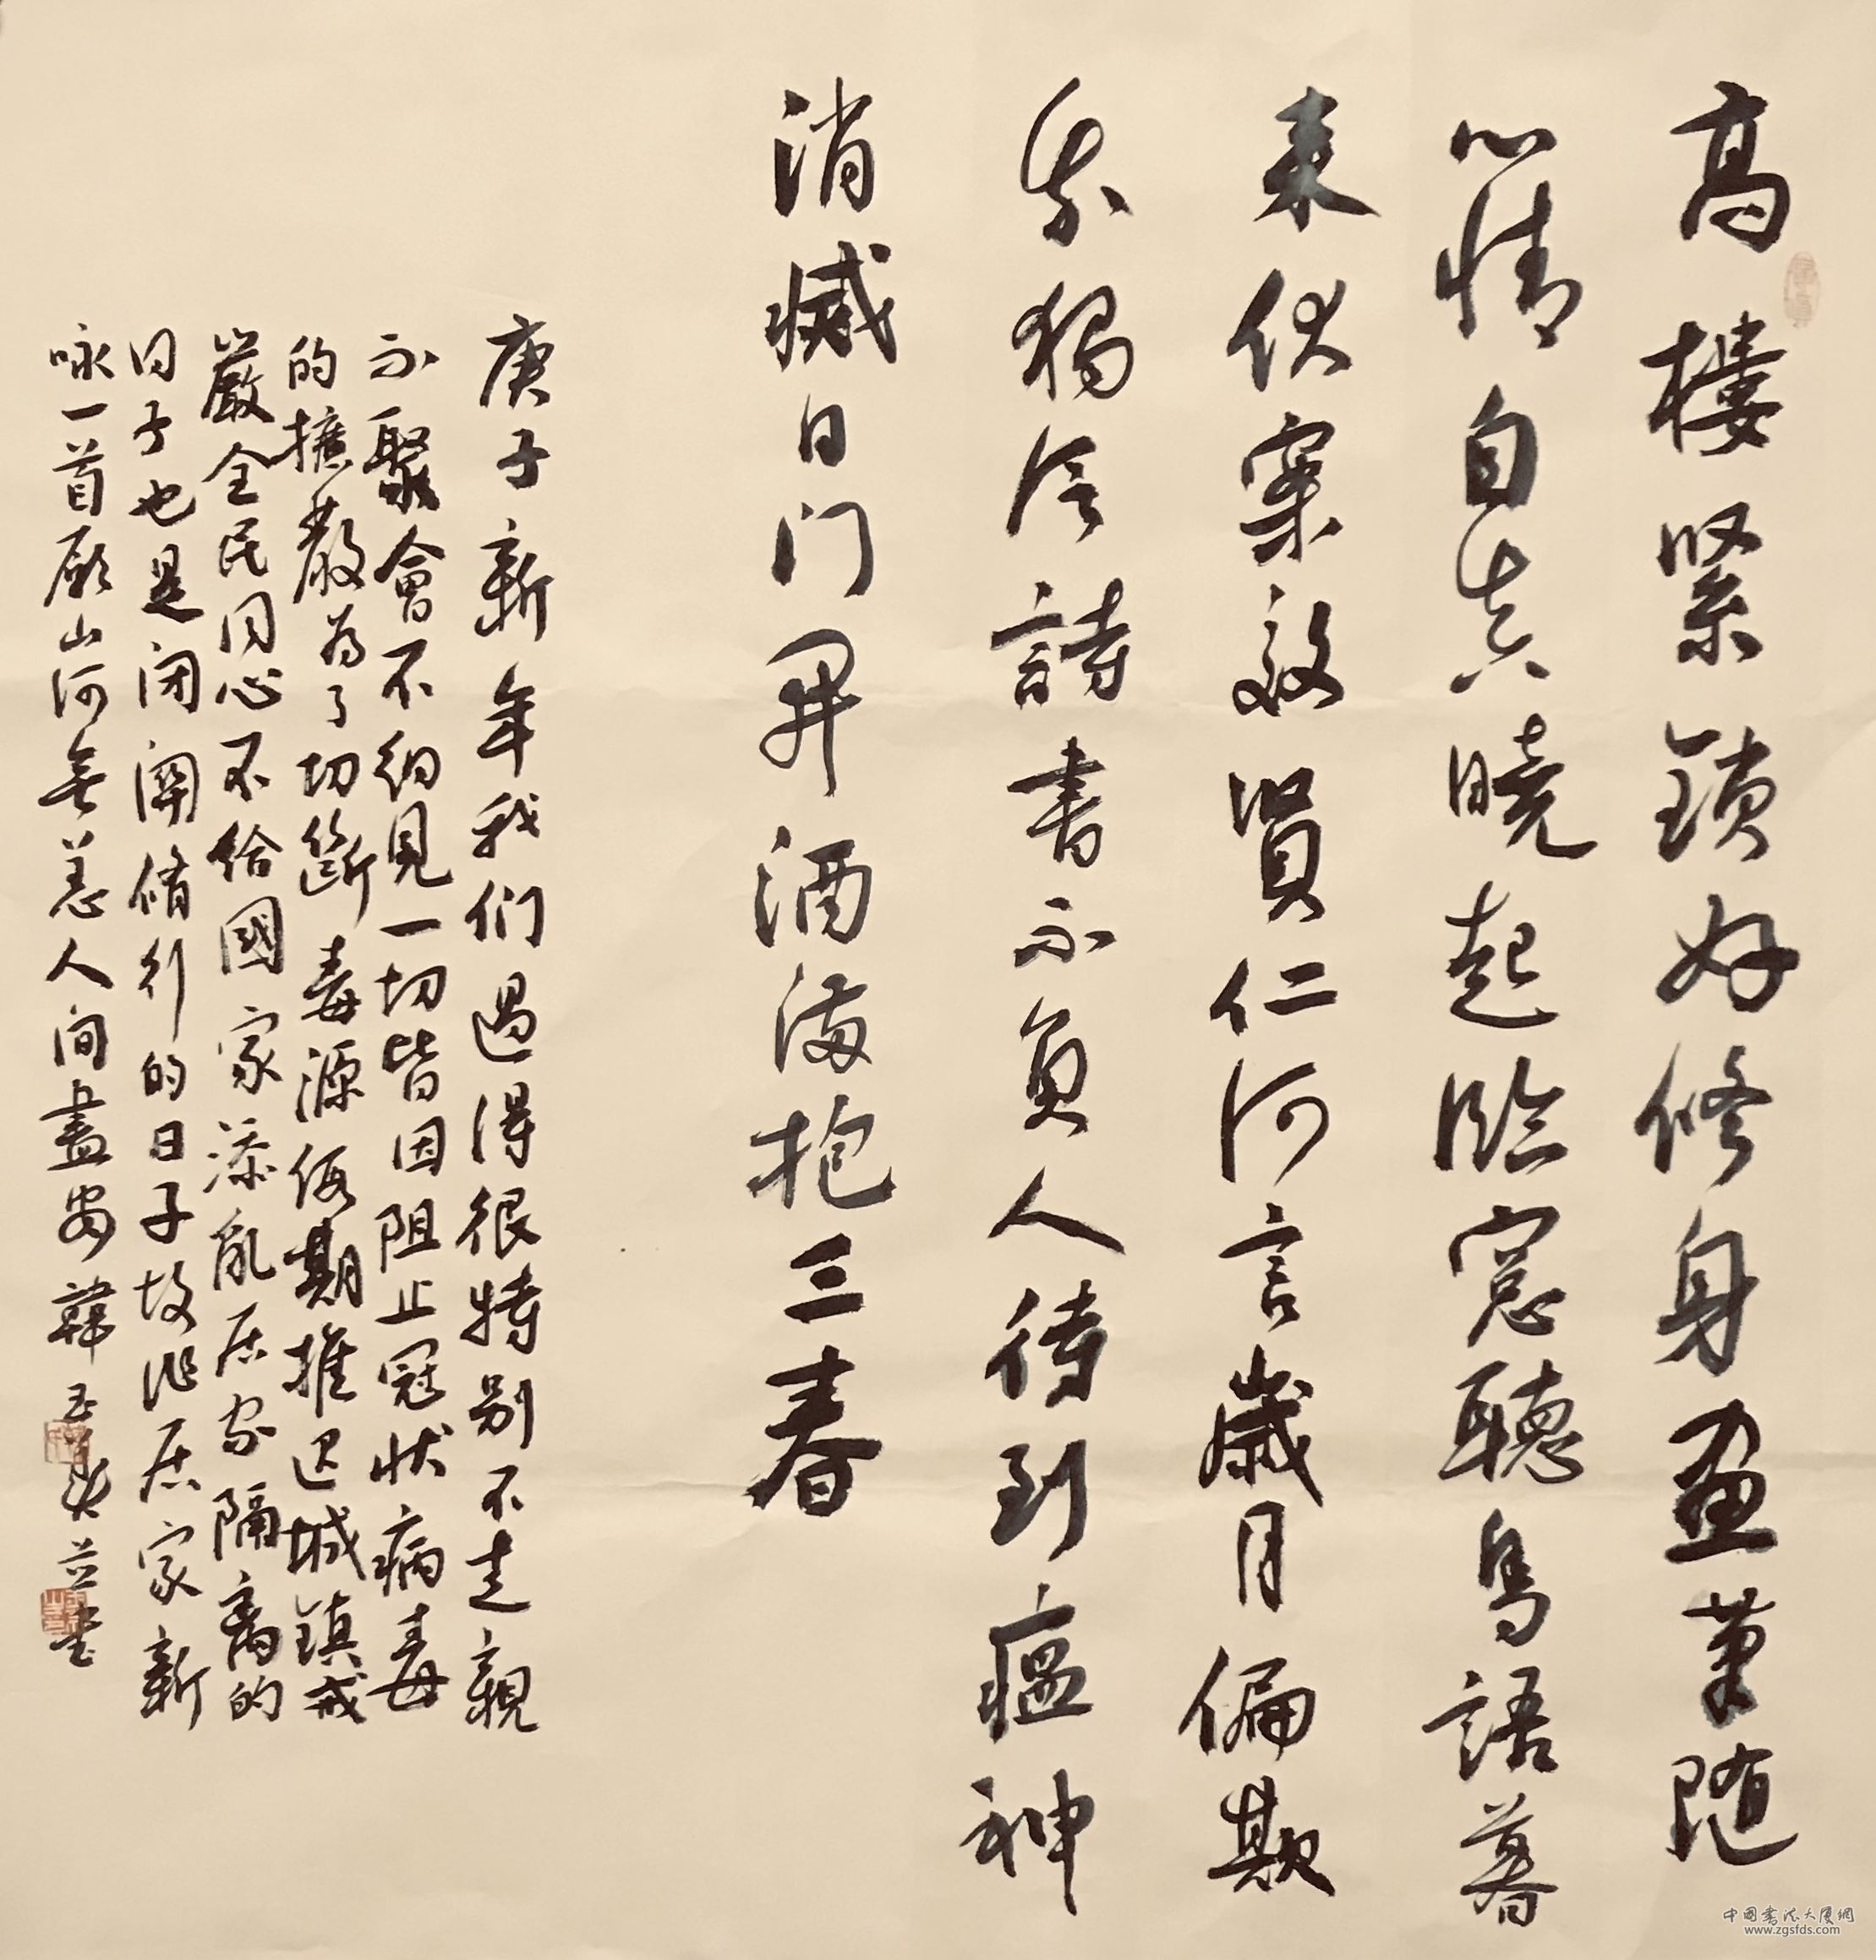 高樓緊鎖好修身畫筆随
心情自真曉起臨窓聽鳥語暮
来伏案效賢仁何言歲月偏欺
我獨信詩書不負人待到瘟神
消滅日门開酒满抱三春
庚子新年我们過得很特别不走親
不聚會不约見一切皆因阻止冠状病毒
的擴散为了切斷毒源假期推迟城鎮戒
嚴全民同心不给國家添亂居家隔离的
日子也是闭關脩行的日子故作居家新
咏一首願山河無恙人间盡安韓玉
书
中国書法大廈網
www.zgsfds.com